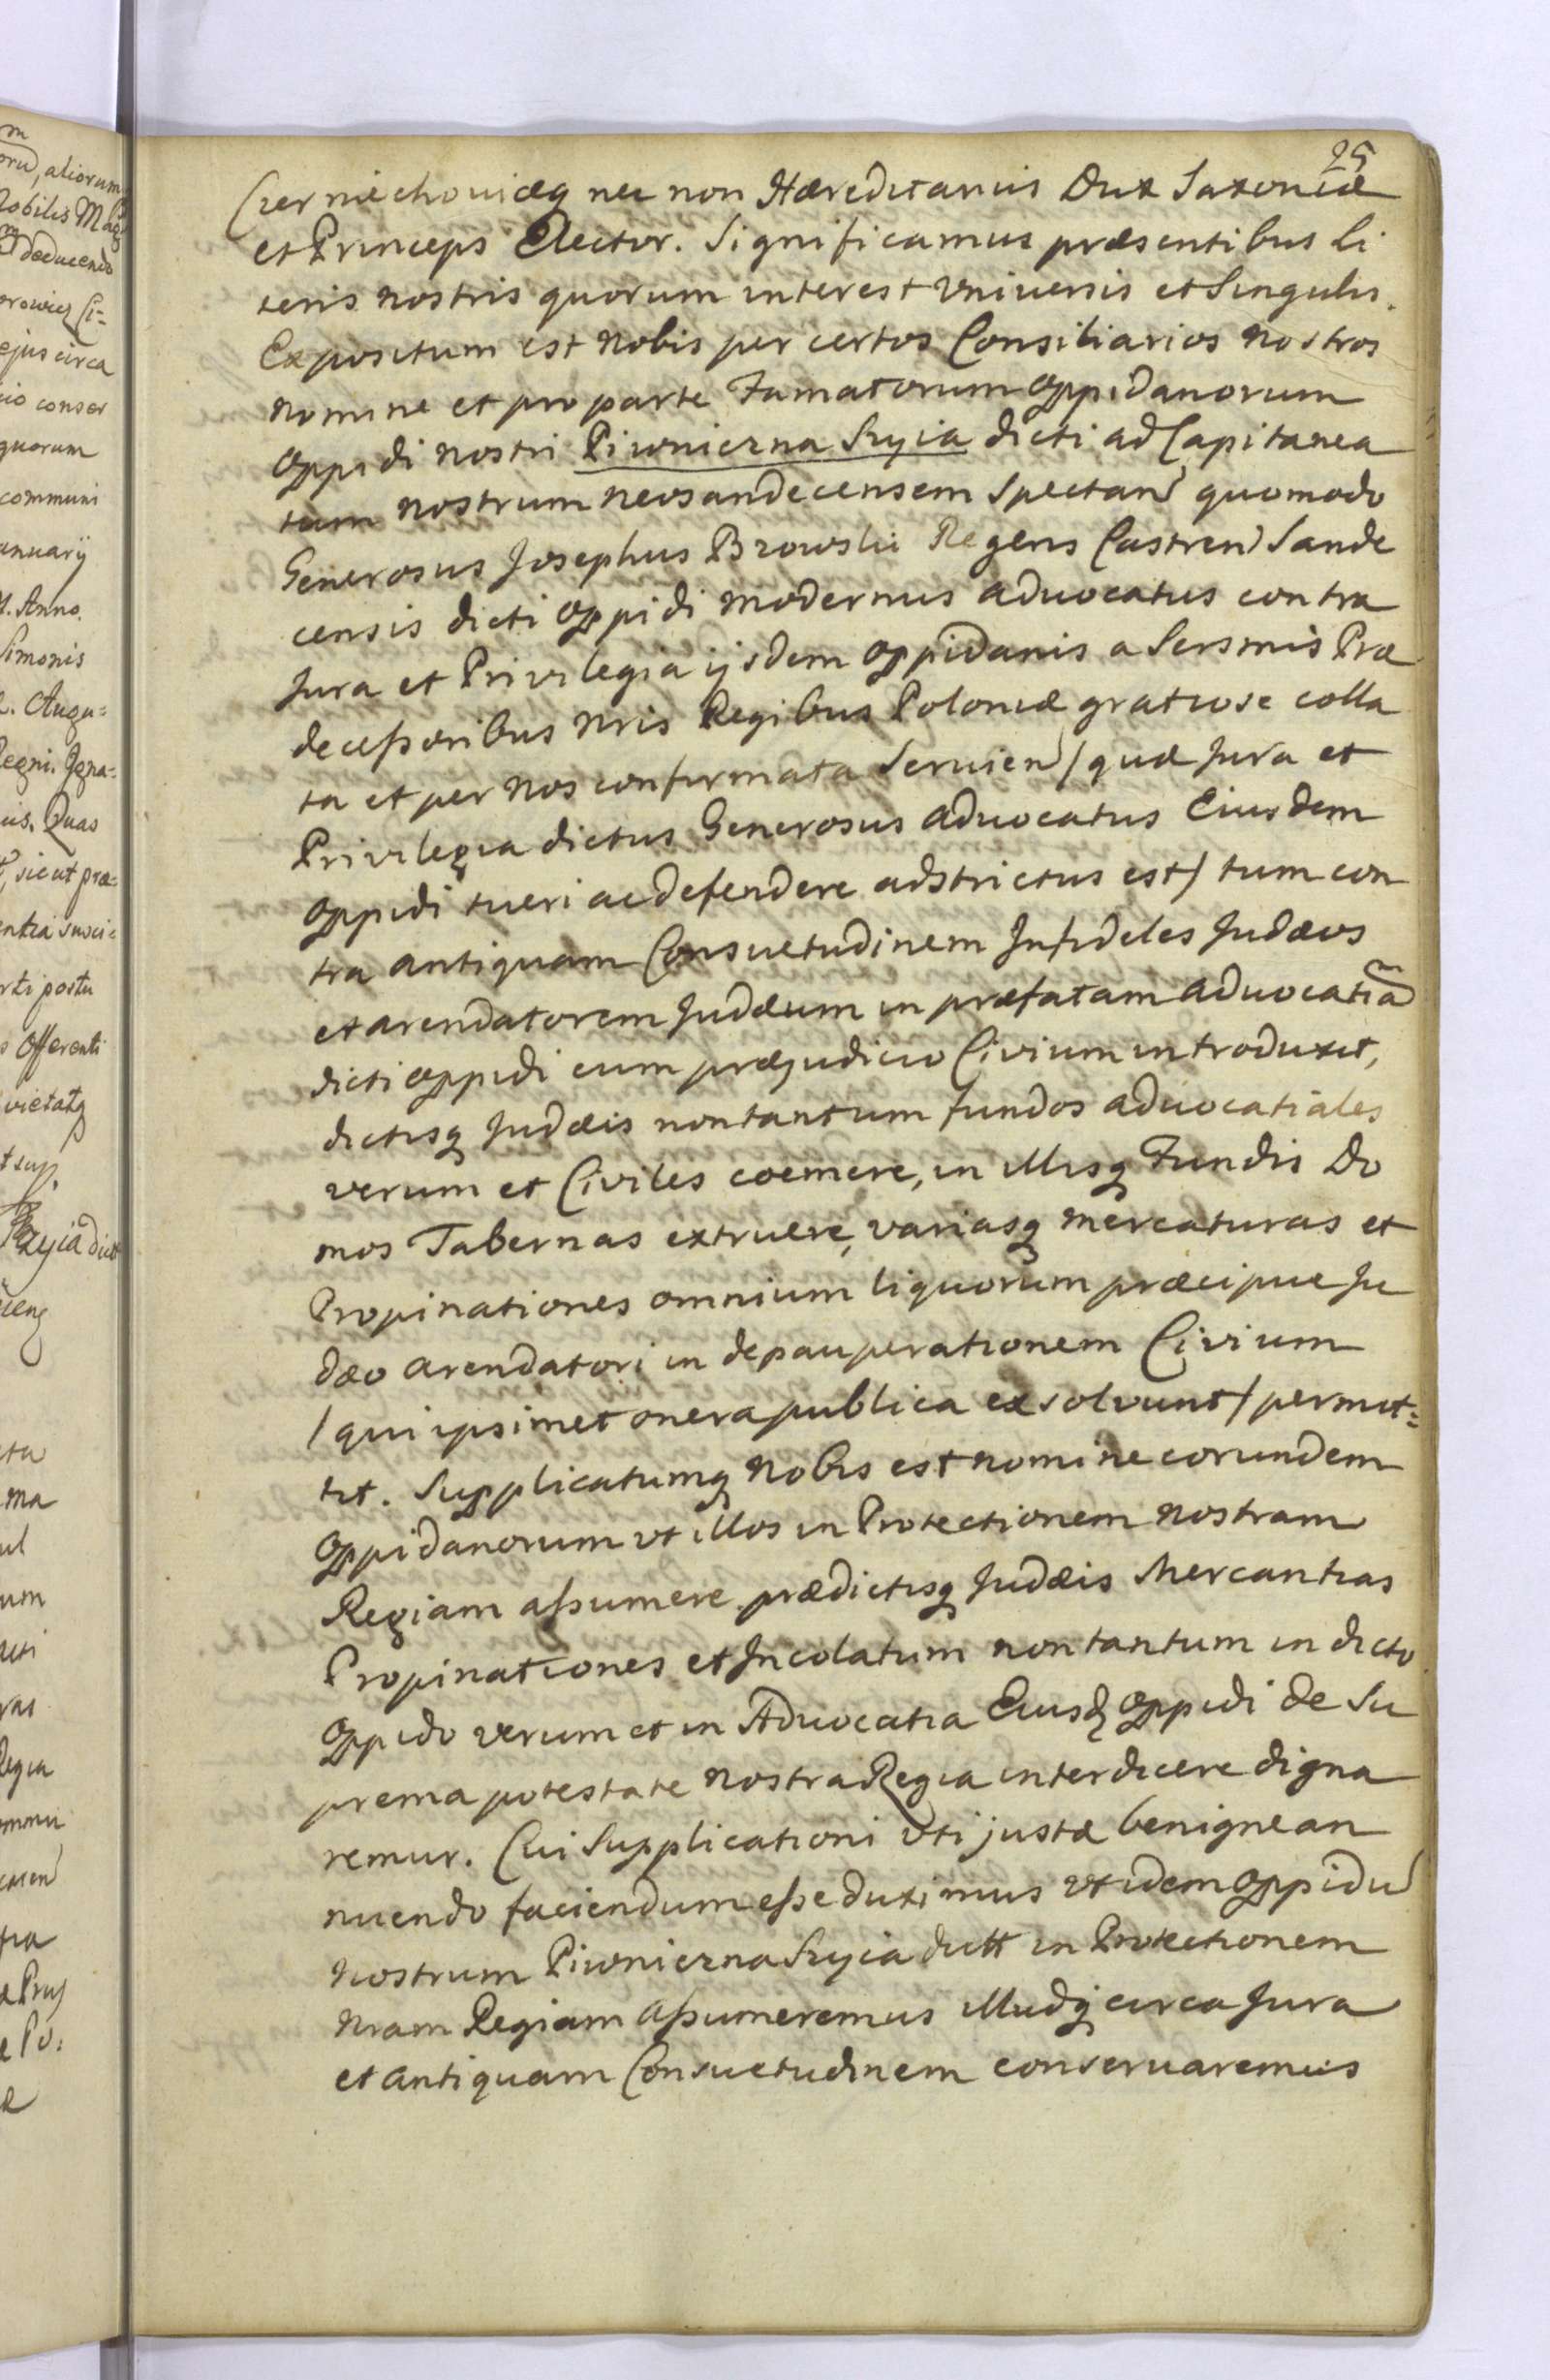 25
Czerniechoviæq nec non Hæreditarius Dux Saxoniæ
et Princeps Elector. Significamus præsentibus li
teris nostris quorum interest Vniuersis et Singulis.
Expositum est Nobis per certos Consiliarios nostros
nomine et pro parte Famatorum Oppidanorum
Oppidi nostri Piwniczna Szyia dicti ad Capitanea
tum nostrum Neosandecensem Spectan quomodo
Generosus Josephus Brzowski Regens Castren Sande
censis dicti Oppidi modernus Aduocatus contra
Jura et Privilegia ijsdem Oppidanis a Sersmis Præ
decessoribus Nris Regibus Poloniæ gratiose colla
ta et per nos confirmata Seruien / quæ Jura et
Privilegia dictus Generosus Aduocatus Eiusdem
Oppidi tueri ac defendere adstrictus est / tum con
tra antiquam Consuetudinem Jnfideles Judæos
et arendatorem Judæum in præfatam Aduocatiã
dicti Oppidi cum præjudicio Civium introduxit,
dictisq Judæis non tantum fundos aduocatiales
verum et Civiles coemere, in illisq Fundis Do
mos Tabernas extruere, variasq mercaturas et
Propinationes omnium liquorum præcipue Ju
dæo arendatori in depauperationem Civium
/ qui ipsimet onera publica exsolvunt / permit=
tit. Supplicatumq Nobis est nomine eorundem
Oppidanorum vt illos in Protectionem nostram
Regiam assumere prædictisq Judæis Mercantias
Propinationes et Jncolatum non tantum in dicto
Oppido verum et in Aduocatia Eiusd Oppidi de Su
prema potestate nostra Regia interdicere digna
remur. Cui Supplicationi vti justæ benigne an
nuendo faciendum esse duximus vt idem Oppidu
nostrum Piwniczna Szyia dictt in Protectionem
Nram Regiam assumeremus illudq circa Jura
et antiquam Consuetudinem conservaremus